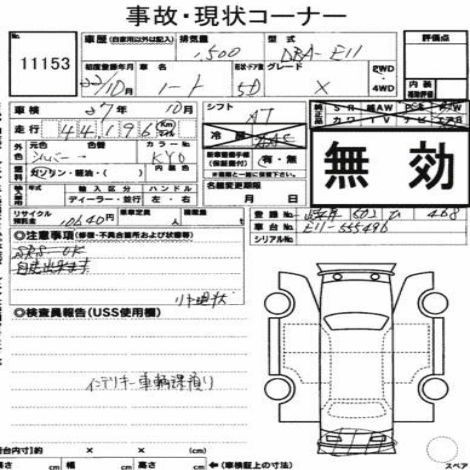 事故・現状コーナー
No. 11153
車歴 (自家用以外は記入) 排気量 型式 評価点
1,500 DBA-E11
初度登録年月 車名 形状・ドア数 グレード 2WD
22/10月 ノート 5D X 4WD
内装
補助評価
車検 27年 10月 シフト AT
走行 44,196 Km
冷房 AAC
純正 SR 純AW PS
カワ TV ナビ エアB
外色 元色 色替 カラーNo.
シルバー KY0
新車整備手帳 (保証書付) 有・無
※一緒に保管して下さい。
燃料 ガソリン・軽油・( ) 内装色
名義変更期限
月 日
無効
輸入車 年式 輸入区分 ハンドル
ディーラー・並行 左・右
リサイクル預託金 10640円 乗車定員 人 積載量 t
登録No. 502 ひ 468
車台No. E11-555496
シリアルNo.
◎注意事項 (修復・不具合箇所および状態等)
SRS-OK
自走出来ます
リサ現状
◎検査員報告 (USS使用欄)
インテリキー車輌預り
荷台内寸 × ×
高さ cm 幅 cm 高さ cm ←(車検証上の寸法) スペア